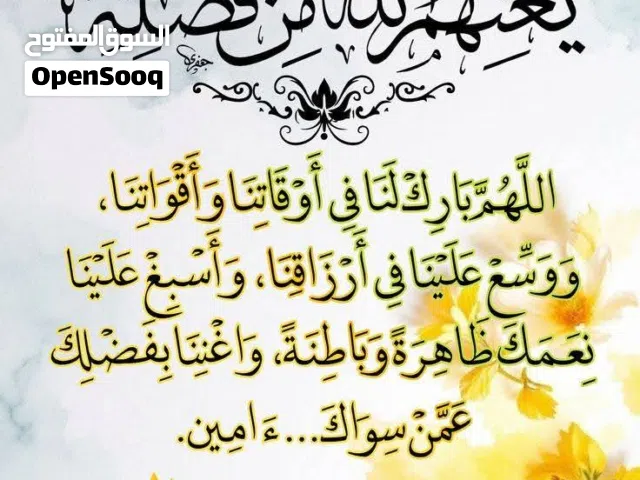 يُغْنِهِمُ اللهُ مِنْ فَضْلِهِ
السوق المفتوح
OpenSooq
اللَّهُمَّ بَارِكْ لَنَا فِي أَوْقَاتِنَا وَأَقْوَاتِنَا،
وَوَسِّعْ عَلَيْنَا فِي أَرْزَاقِنَا، وَأَسْبِغْ عَلَيْنَا
نِعَمَكَ ظَاهِرَةً وَبَاطِنَةً، وَاغْنِنَا بِفَضْلِكَ
عَمَّنْ سِوَاكَ... ءَامِين.